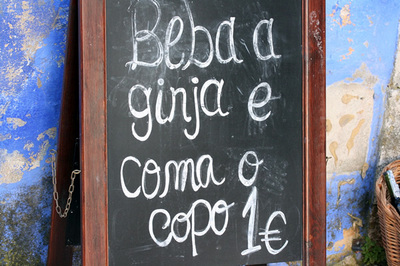 Beba a
ginja e
coma o
copo 1€